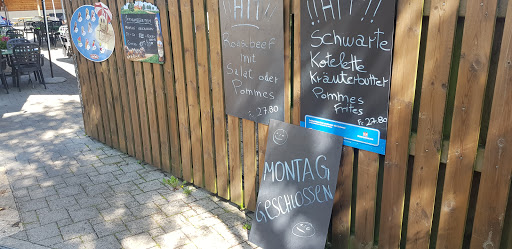 !!HIT!!
Roastbeef
mit
Salat oder
Pommes
Fr. 27.80
!!HIT!!
Schwarte
Kotelette
Kräuterbutter
Pommes
Frites
Fr. 27.80
MONTAG
GESCHLOSSEN